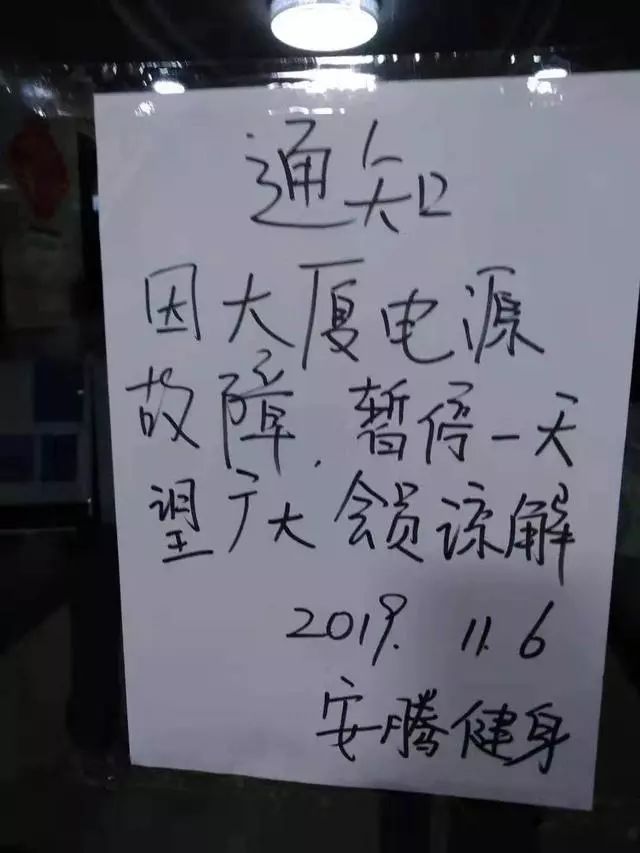 通知
因大厦电源
故障.暂停一天
望广大会员谅解
2019.11.6
安腾健身